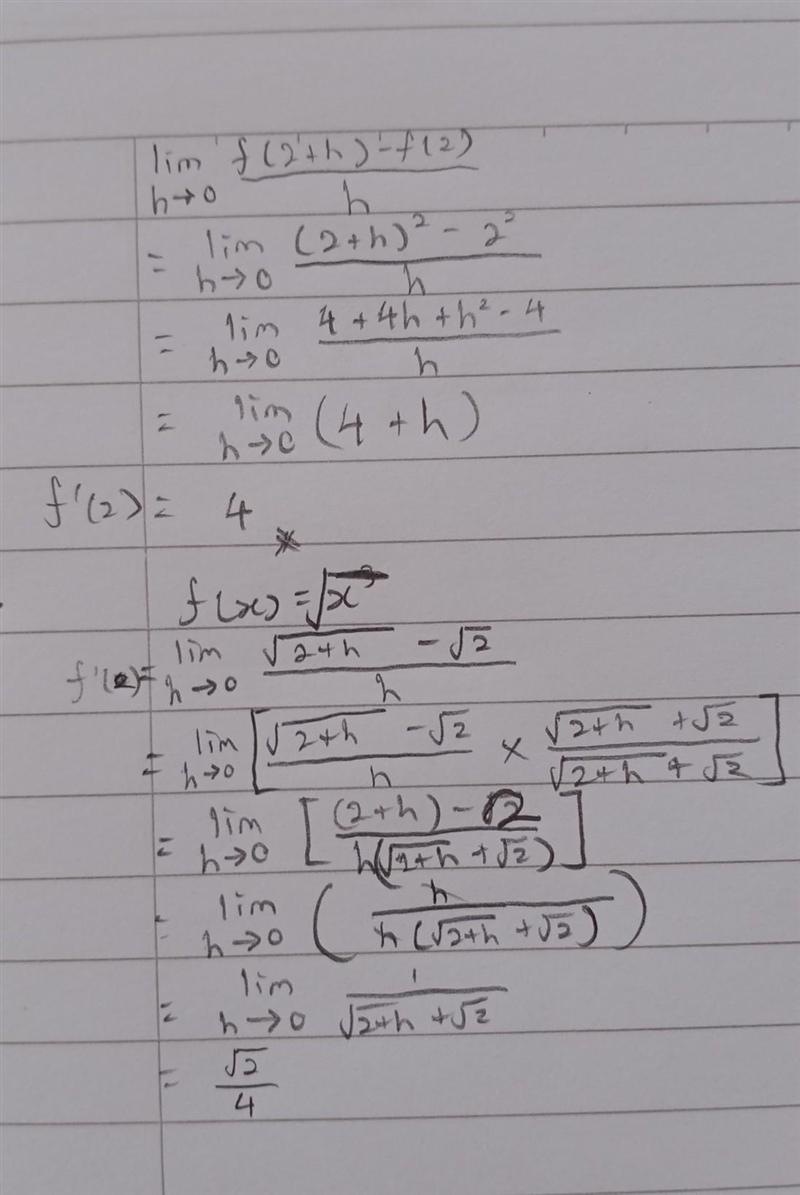 lim h→0 f(2+h)-f(2) / h
= lim h→0 (2+h)² - 2² / h
= lim h→0 4 + 4h + h² - 4 / h
= lim h→0 (4 + h)
f'(2) = 4
f(x) = √x
f'(2) = lim h→0 √(2+h) - √2 / h
= lim h→0 [ √(2+h) - √2 / h × √(2+h) + √2 / √(2+h) + √2 ]
= lim h→0 [ (2+h) - 2 / h(√(2+h) + √2) ]
= lim h→0 ( h / h(√(2+h) + √2) )
= lim h→0 1 / √(2+h) + √2
= √2 / 4